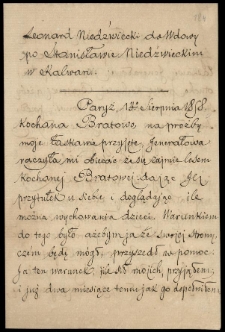 Leonard Niedźwiecki do Wdowy
po Stanisławie Niedźwieckim
w Kalwarii.
Paryż 13º Sierpnia 1858.
Kochana Bratowo, na prośby
moje łaskawie przyjęte, Jenerałowa
raczyła mi obiecać że się zajmie losem
kochanej Bratowej dając Jej
przytułek u siebie i doglądając ile
można wychowania dzieci. Warunkiem
do tego było ażebym ja ze swojej strony,
czem będę mógł, przyszedł w pomoc.
Ja ten warunek, jak od mojich, przyjąłem,
i już dwa miesiące temu jak go dopełniłem